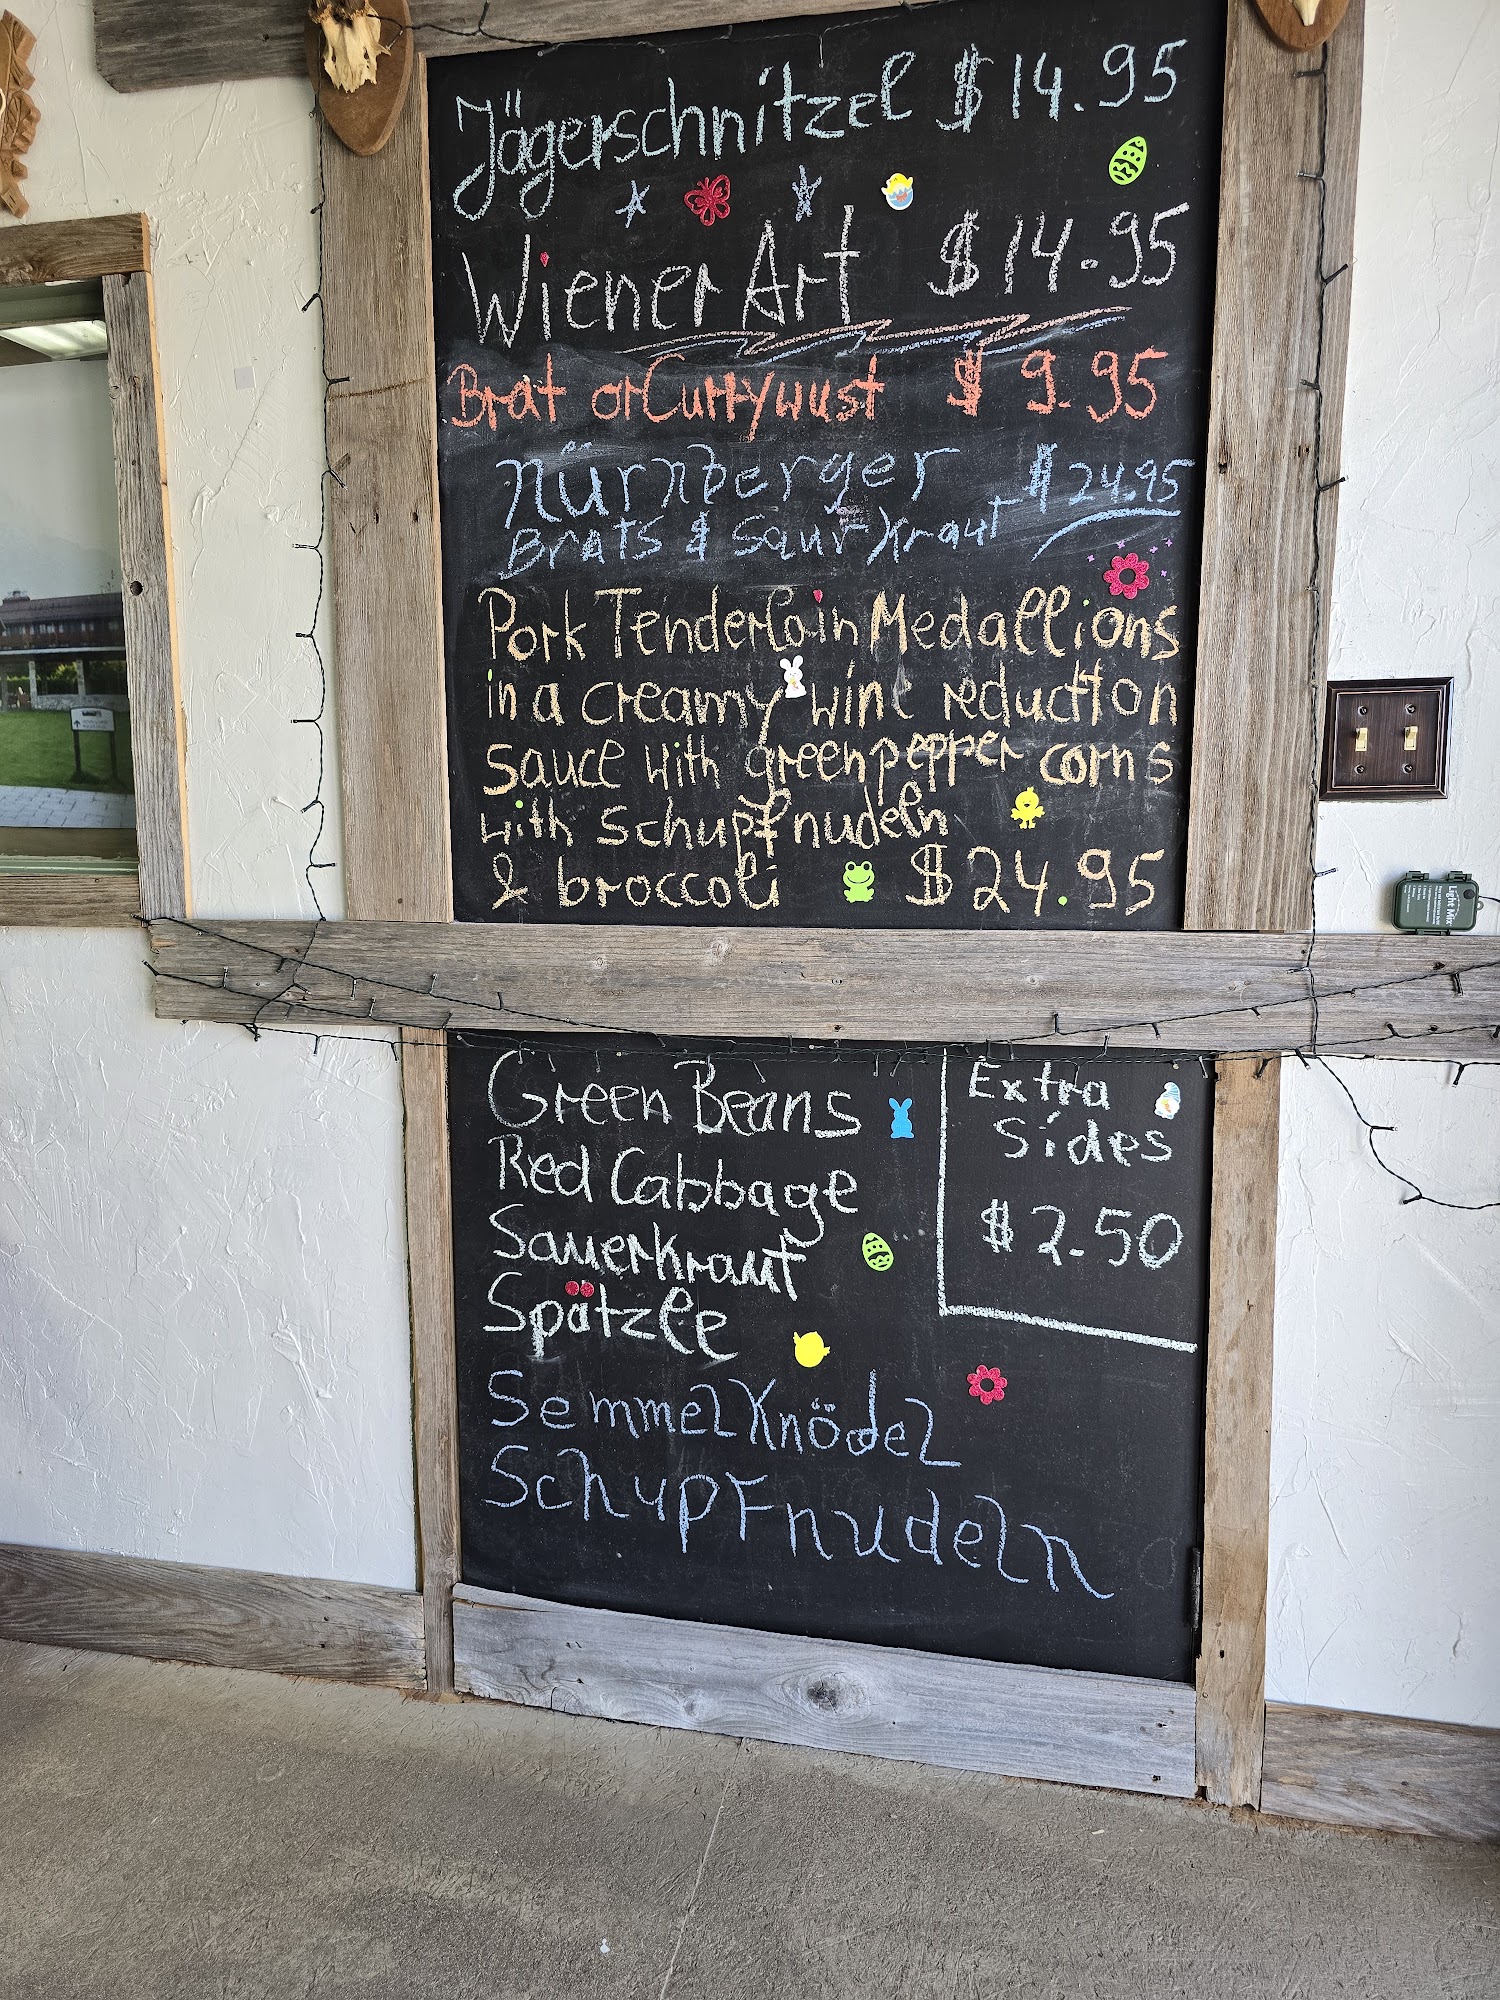 Jägerschnitzel $14.95
Wiener Art $14.95
Brat or Currywust $9.95
Nürnberger $24.95
Brats & Saurkraut
Pork Tenderloin Medallions
in a creamy wine reduction
sauce with green pepper corns
with schupfnudeln
& broccoli $24.95
Green Beans
Red Cabbage
Sauerkraut
Spätzle
Semmelknödel
Schupfnudeln
Extra
Sides
$2.50
Light Mix